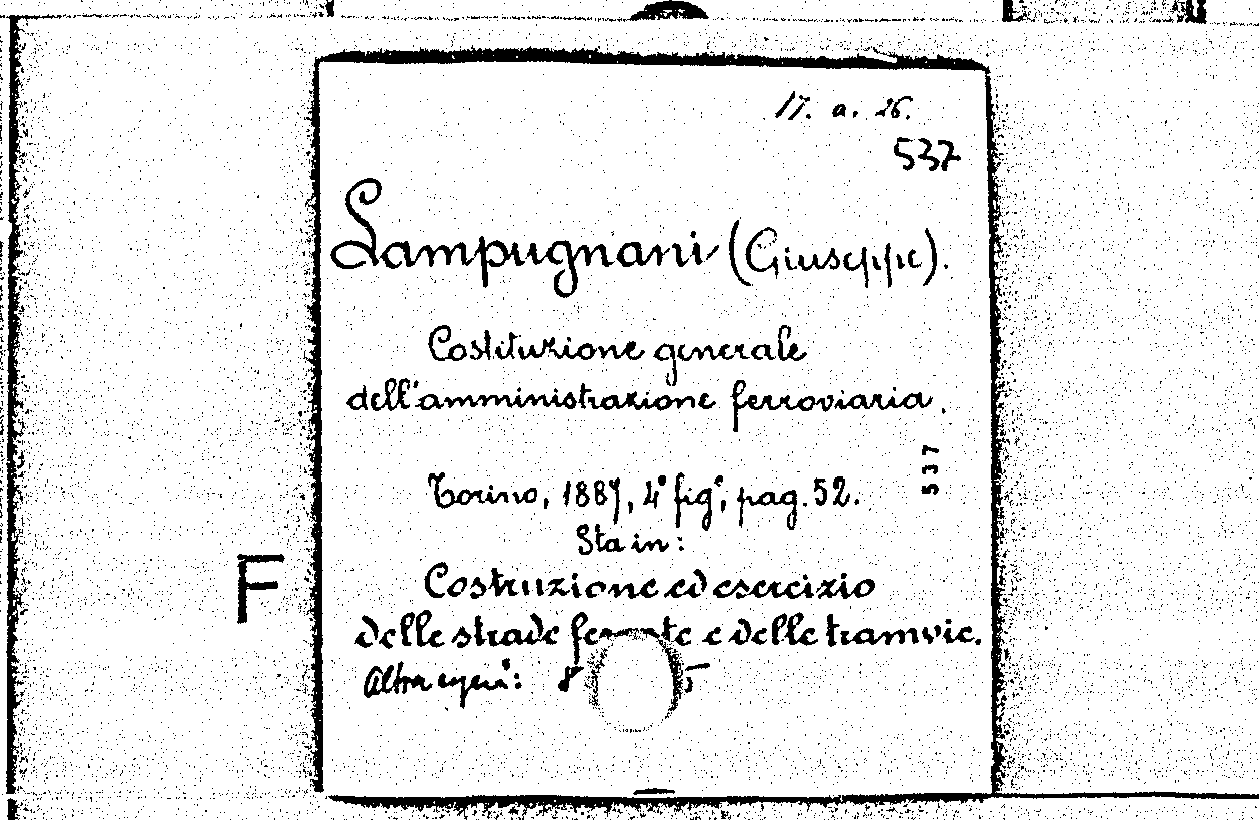 17. a. 26.
537
Lampugnani (Giuseppe).
Costituzione generale
dell'amministrazione ferroviaria.
537
Torino, 1887, 4° fig°, pag. 52.
Sta in:
Costruzione ed esercizio
delle strade e delle tramvie.
F
Altra 8 5